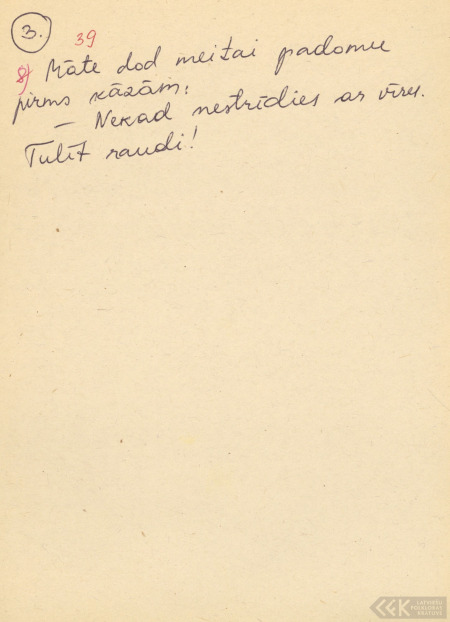 3.
39
8) Māte dod meitai padomu
pirms kāzām:
– Nekad nestrīdies ar vīru.
Tulīt raudi!
LATVIEŠU
FOLKLORAS
KRĀTUVE